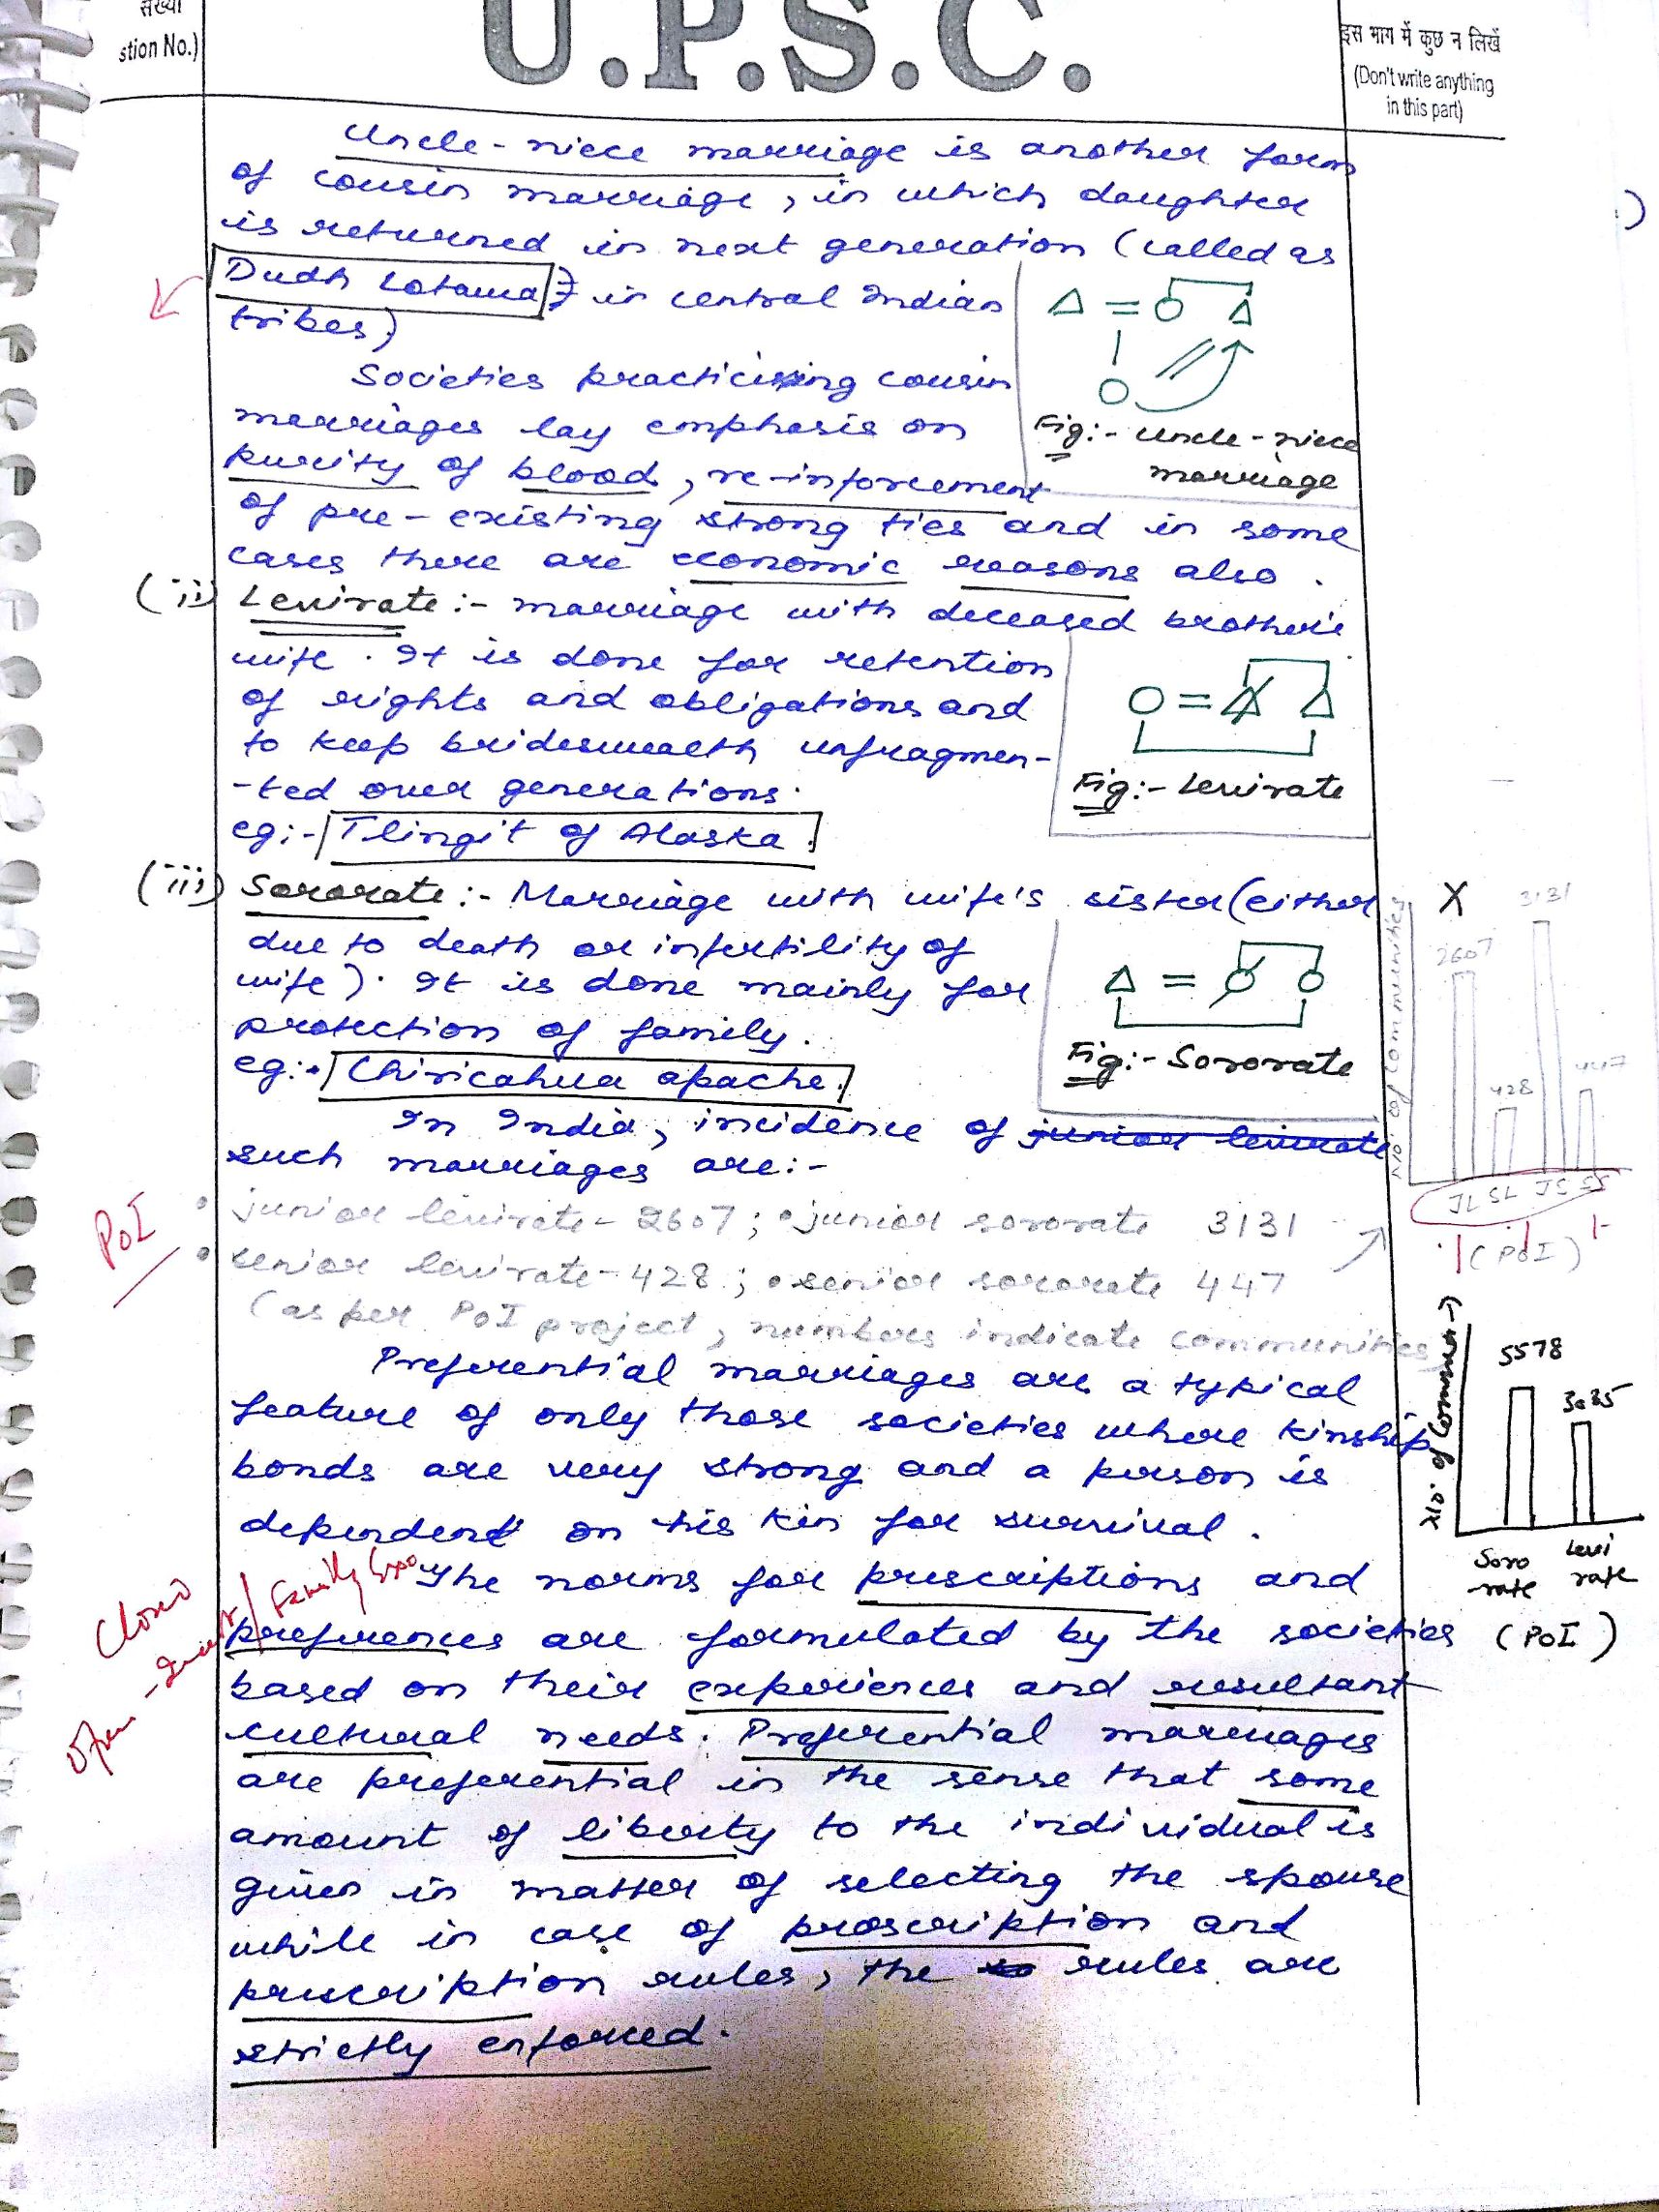 संख्या
stion No.)
U.P.S.C.
इस भाग में कुछ न लिखें
(Don't write anything
in this part)
Uncle-niece marriage is another form
of cousin marriage, in which daughter
is returned in next generation (called as
Dudh Lotawa in central Indian
tribes)
Fig:- Uncle-niece
marriage
Societies practicing cousin
marriages lay emphasis on
purity of blood, re-inforcement
of pre-existing strong ties and in some
cases there are economic reasons also.
(ii) Levirate:- marriage with deceased brother's
wife. It is done for retention
of rights and obligations and
to keep brideswealth unfragmen-
-ted over generations.
eg:- Tlingit of Alaska.
Fig:- Levirate
(iii) Sororate:- Marriage with wife's sister (either
due to death or infertility of
wife). It is done mainly for
protection of family.
eg:- Chiricahua apache.
Fig:- Sororate
In India, incidence of junior levirate
such marriages are:-
PoI
• junior levirate - 2607; • junior sororate 3131
• senior levirate - 428; • senior sororate 447
(as per PoI project, numbers indicate communities
X
No. of communities
2607
428
3131
447
JL SL JS SS
(PoI)
Preferential marriages are a typical
feature of only those societies where kinship
bonds are very strong and a person is
dependent on his kin for survival.
No. of Commun→
5578
3035
Soro
rate
Levi
rate
(PoI)
The norms for prescriptions and
preferences are formulated by the societies
based on their experiences and resultant
cultural needs. Preferential marriages
are preferential in the sense that some
amount of liberty to the individual is
given in matter of selecting the spouse
while in case of proscription and
prescription rules, the rules are
strictly enforced.
Open -